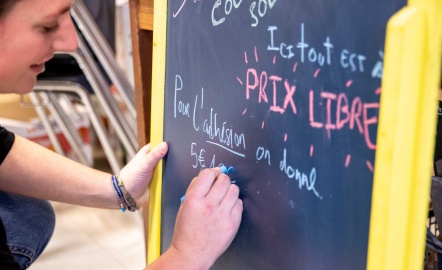 Ici tout est à
PRIX LIBRE
Pour l'adhésion
on donne
5€